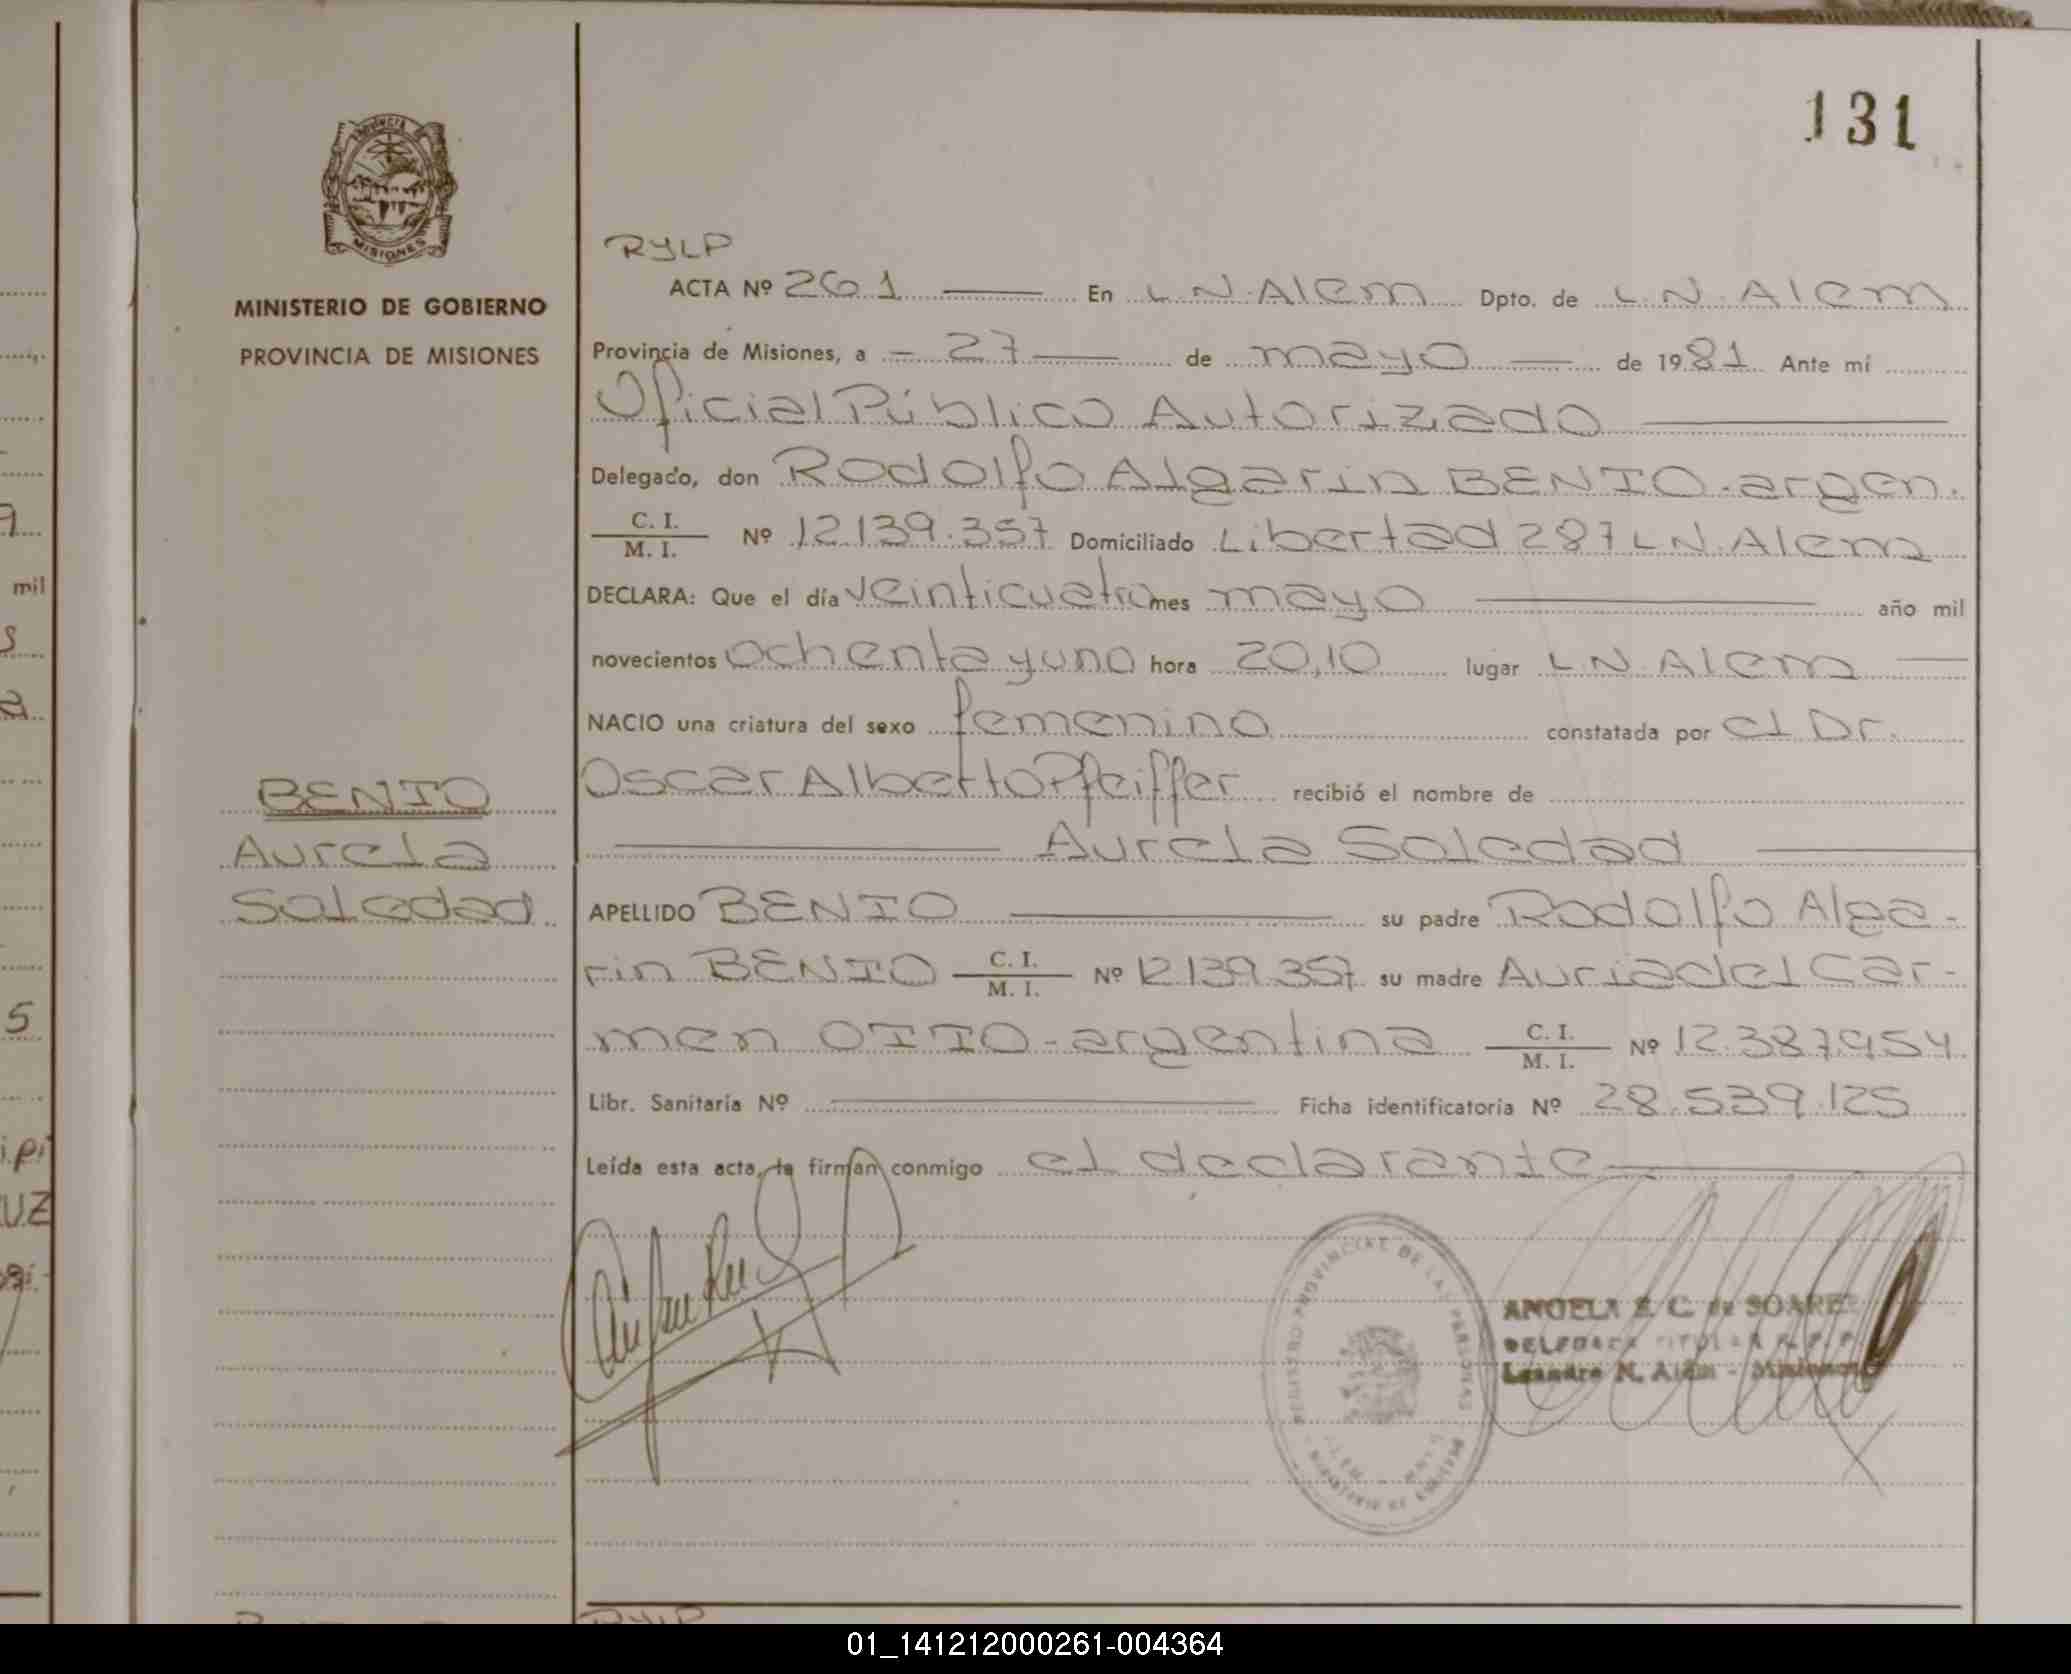 131
PROVINCIA
MISIONES
MINISTERIO DE GOBIERNO
PROVINCIA DE MISIONES
BENTO
Aurela
Soledad
RYLP
ACTA Nº 261 En L.N. Alem Dpto. de L.N. Alem
Provincia de Misiones, a 27 de mayo de 1981 Ante mí
Oficial Público Autorizado
Delegado, don Rodolfo Algarin BENTO - argen.
C. I. / M. I. Nº 12.139.357 Domiciliado Libertad 287 L.N. Alem
DECLARA: Que el día veinticuatro mes mayo año mil
novecientos ochenta y uno hora 20,10 lugar L.N. Alem
NACIO una criatura del sexo femenino constatada por el Dr.
Oscar Alberto Pfeiffer recibió el nombre de
Aurela Soledad
APELLIDO BENTO su padre Rodolfo Alga-
rin BENTO C. I. / M. I. Nº 12.139.357 su madre Auria del Car-
men OTTO - argentina C. I. / M. I. Nº 12.387.954
Libr. Sanitaria Nº Ficha identificatoria Nº 28.539.125
Leída esta acta, la firman conmigo el declarante
REGISTRO PROVINCIAL DE LAS PERSONAS
MINISTERIO DE GOBIERNO
ANGELA E. C. de SOAREZ
DELEGADA TITULAR R. P. P.
Leandro N. Alem - Misiones
mil
s
a
5
UZ
RYLP
01_141212000261-004364